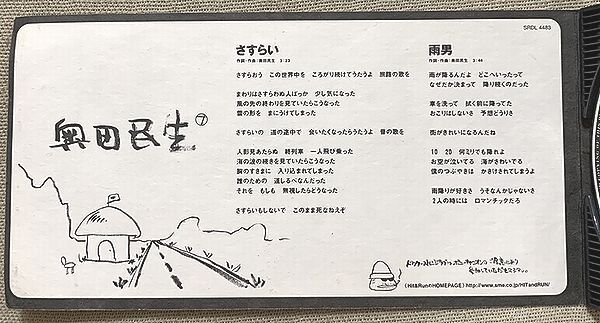 SRDL 4483
奥田民生⑦
さすらい
作詞・作曲:奥田民生 3:23
さすらおう この世界中を ころがり続けてうたうよ 旅路の歌を
まわりはさすらわぬ人ばっか 少し気になった
風の先の終わりを見ていたらこうなった
雲の形を まにうけてしまった
さすらいの 道の途中で 会いたくなったらうたうよ 昔の歌を
人影見あたらぬ 終列車 一人飛び乗った
海の波の続きを見ていたらこうなった
胸のすきまに 入り込まれてしまった
誰のための 道しるべなんだった
それを もしも 無視したらどうなった
さすらいもしないで このまま死なねえぞ
雨男
作詞・作曲:奥田民生 3:46
雨が降るんだよ どこへいったって
なぜだか決まって 降り続くのだった
車を洗って 拭く前に降ってた
おこりはしないさ 予想どうりさ
街がきれいになるんだね
10 20 何ミリでも降れよ
お空が泣いてる 海がさわいでる
僕のつぶやきは かきけされてしまうよ
雨降りが好きさ うそなんかじゃないさ
2人の時には ロマンチックだろ
(Hit&RunのHOMEPAGE) http://www.sme.co.jp/HITandRUN/